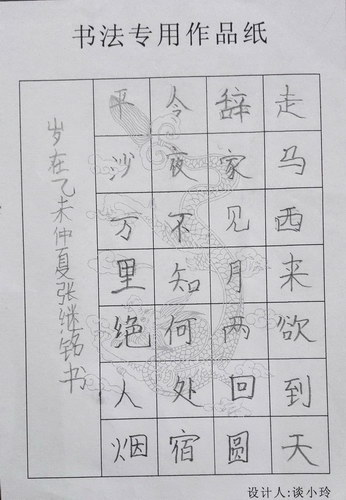 书法专用作品纸
走马西来欲到天
辞家见月两回圆
今夜不知何处宿
平沙万里绝人烟
岁在乙未仲夏张继铭书
设计人:谈小玲